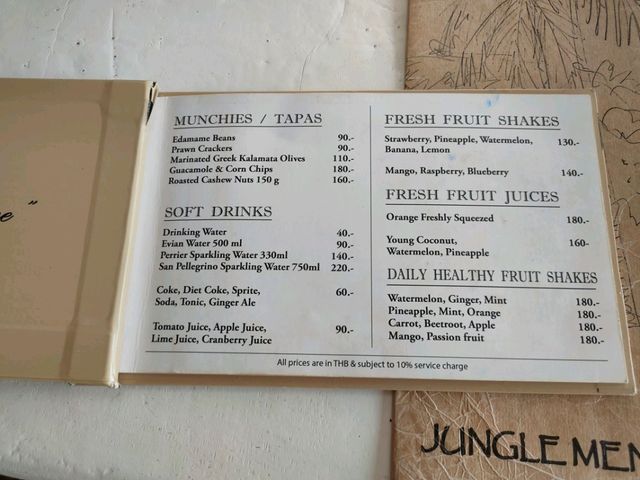 e "
MUNCHIES / TAPAS
Edamame Beans 90.-
Prawn Crackers 90.-
Marinated Greek Kalamata Olives 110.-
Guacamole & Corn Chips 180.-
Roasted Cashew Nuts 150 g 160.-
SOFT DRINKS
Drinking Water 40.-
Evian Water 500 ml 90.-
Perrier Sparkling Water 330ml 140.-
San Pellegrino Sparkling Water 750ml 220.-
Coke, Diet Coke, Sprite, 60.-
Soda, Tonic, Ginger Ale
Tomato Juice, Apple Juice, 90.-
Lime Juice, Cranberry Juice
FRESH FRUIT SHAKES
Strawberry, Pineapple, Watermelon, 130.-
Banana, Lemon
Mango, Raspberry, Blueberry 140.-
FRESH FRUIT JUICES
Orange Freshly Squeezed 180.-
Young Coconut, 160-
Watermelon, Pineapple
DAILY HEALTHY FRUIT SHAKES
Watermelon, Ginger, Mint 180.-
Pineapple, Mint, Orange 180.-
Carrot, Beetroot, Apple 180.-
Mango, Passion fruit 180.-
All prices are in THB & subject to 10% service charge
JUNGLE MEN